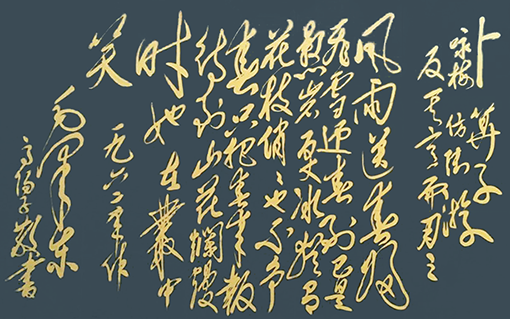 卜算子
咏梅 仿陆游
反其意而用之
风雨送春归
飞雪迎春到已是
悬岩百丈冰犹有
花枝俏俏也不争
春只把春来报
待到山花爛熳
时她在叢中
笑
一九六二年作
毛泽东
敬书